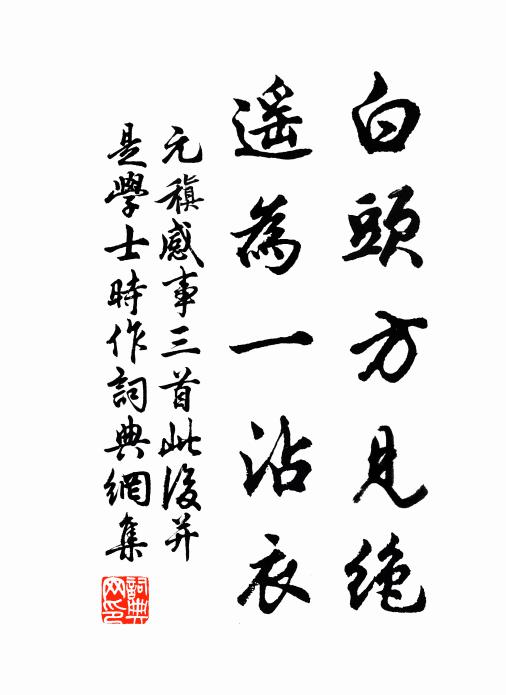 白頭方見絶
遥為一沾衣
元稹感事三首此後并
是學士時作詞典網集
詞典網印